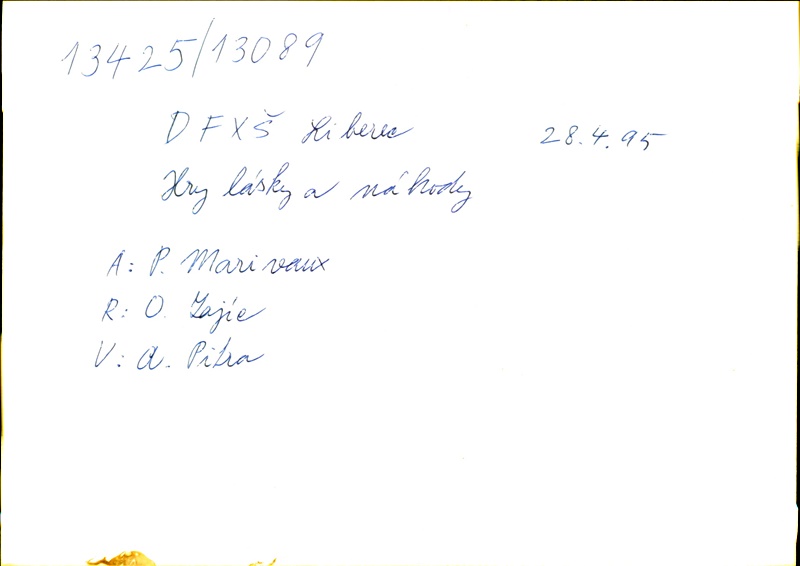 13425/13089
DFXŠ Liberec 28.4.95
Hry lásky a náhody
A: P. Marivaux
R: O. Zajíc
V: A. Pitra